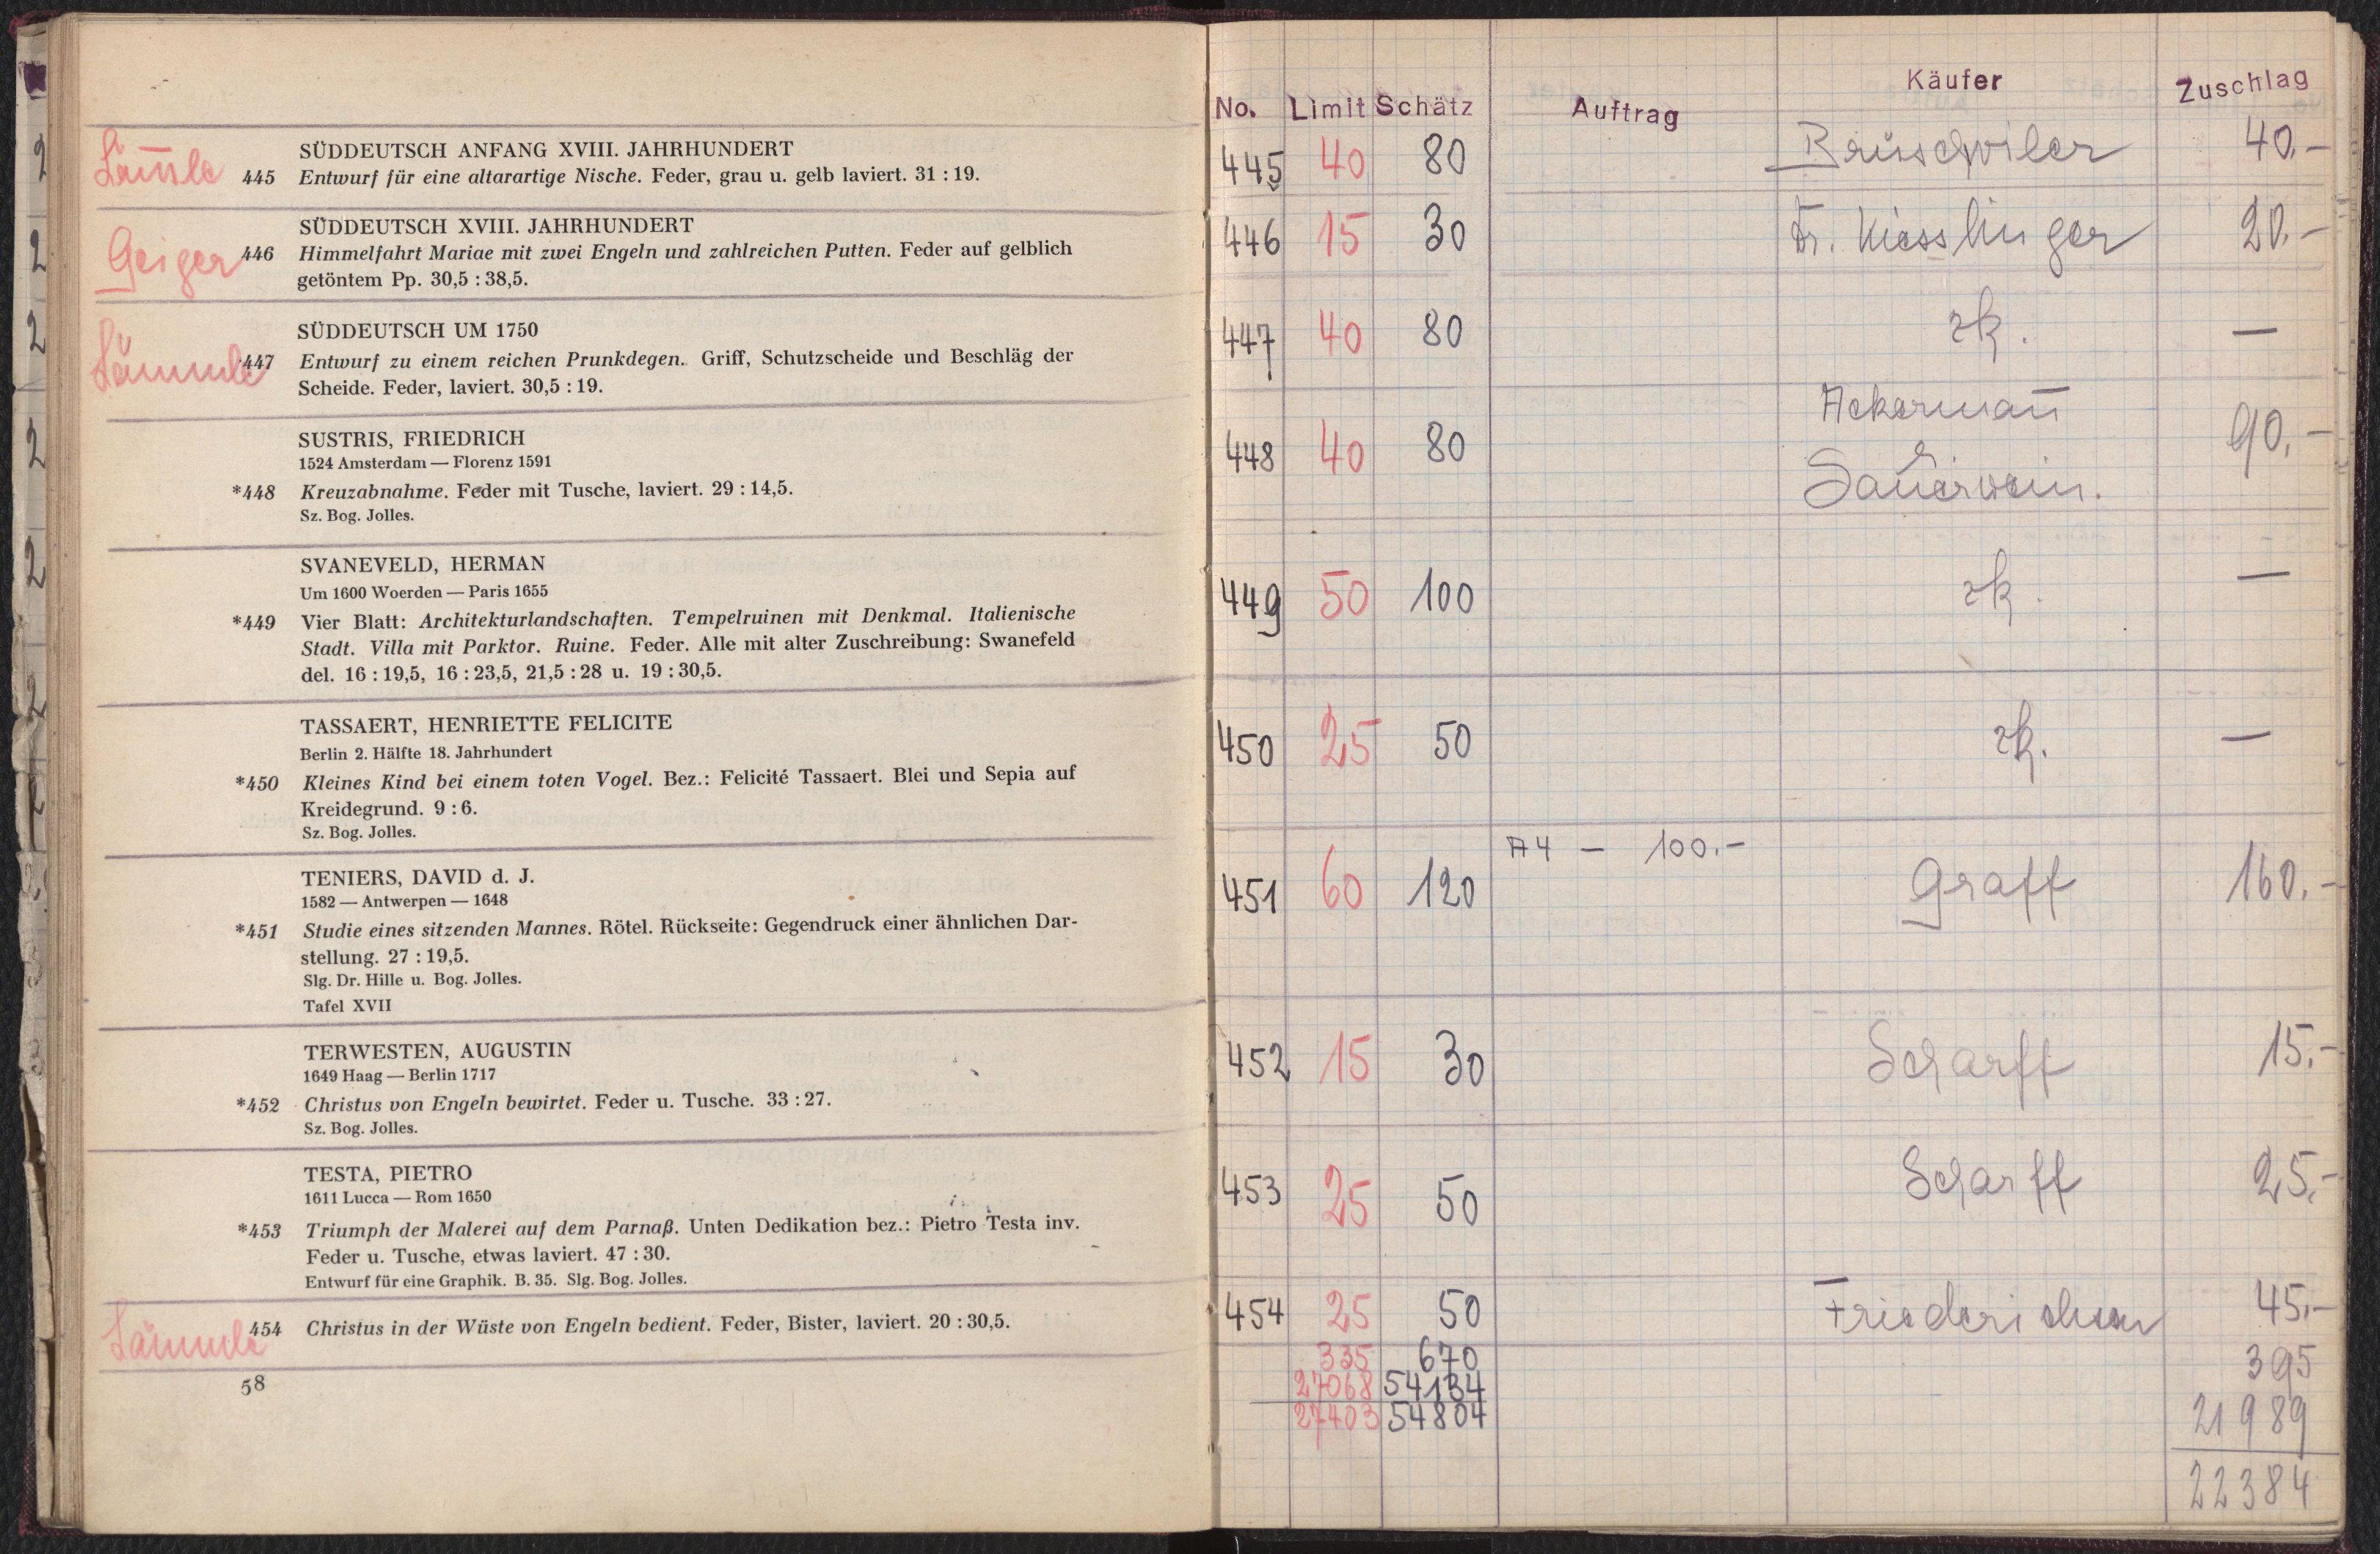 SÜDDEUTSCH ANFANG XVIII. JAHRHUNDERT
445 Entwurf für eine altarartige Nische. Feder, grau u. gelb laviert. 31 : 19.
SÜDDEUTSCH XVIII. JAHRHUNDERT
Geiger 446 Himmelfahrt Mariae mit zwei Engeln und zahlreichen Putten. Feder auf gelblich
getöntem Pp. 30,5 : 38,5.
SÜDDEUTSCH UM 1750
Lämmle 447 Entwurf zu einem reichen Prunkdegen. Griff, Schutzscheide und Beschläg der
Scheide. Feder, laviert. 30,5 : 19.
SUSTRIS, FRIEDRICH
1524 Amsterdam — Florenz 1591
*448 Kreuzabnahme. Feder mit Tusche, laviert. 29 : 14,5.
Sz. Bog. Jolles.
SVANEVELD, HERMAN
Um 1600 Woerden — Paris 1655
*449 Vier Blatt: Architekturlandschaften. Tempelruinen mit Denkmal. Italienische
Stadt. Villa mit Parktor. Ruine. Feder. Alle mit alter Zuschreibung: Swanefeld
del. 16 : 19,5, 16 : 23,5, 21,5 : 28 u. 19 : 30,5.
TASSAERT, HENRIETTE FELICITE
Berlin 2. Hälfte 18. Jahrhundert
*450 Kleines Kind bei einem toten Vogel. Bez.: Felicité Tassaert. Blei und Sepia auf
Kreidegrund. 9 : 6.
Sz. Bog. Jolles.
TENIERS, DAVID d. J.
1582 — Antwerpen — 1648
*451 Studie eines sitzenden Mannes. Rötel. Rückseite: Gegendruck einer ähnlichen Dar-
stellung. 27 : 19,5.
Slg. Dr. Hille u. Bog. Jolles.
Tafel XVII
TERWESTEN, AUGUSTIN
1649 Haag — Berlin 1717
*452 Christus von Engeln bewirtet. Feder u. Tusche. 33 : 27.
Sz. Bog. Jolles.
TESTA, PIETRO
1611 Lucca — Rom 1650
*453 Triumph der Malerei auf dem Parnaß. Unten Dedikation bez.: Pietro Testa inv.
Feder u. Tusche, etwas laviert. 47 : 30.
Entwurf für eine Graphik. B. 35. Slg. Bog. Jolles.
Lämmle 454 Christus in der Wüste von Engeln bedient. Feder, Bister, laviert. 20 : 30,5.
58
No. Limit Schätz Auftrag Käufer Zuschlag
445 40 80 40.-
446 15 30 Dr. Kiesslinger 20.-
447 40 80 zk. —
Ackermann
448 40 80 90.-
Sauerwein.
449 50 100 zk. —
450 25 50 zk. —
A4 — 100.-
451 60 120 Graff 160.-
452 15 30 Scharff 15.-
453 25 50 Scharff 25.-
454 25 50 45.-
335 670 395
27068 54134 21989
27403 54804 22384